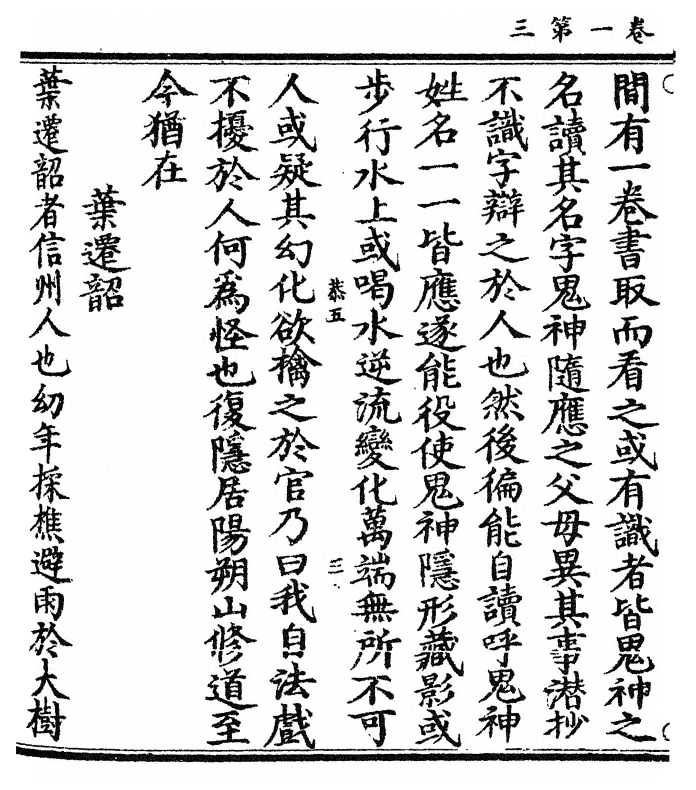 卷一第三
間有一卷書取而看之或有識者皆鬼神之
名讀其名字鬼神隨應之父母異其事潜抄
不識字辯之於人也然後徧能自讀呼鬼神
姓名一一皆應遂能役使鬼神隱形藏影或
步行水上或喝水逆流變化萬端無所不可
恭五
三
人或疑其幻化欲擒之於官乃曰我自法戲
不擾於人何爲怪也復隱居陽朔山修道至
今猶在
葉遷韶
葉遷韶者信州人也幼年採樵避雨於大樹